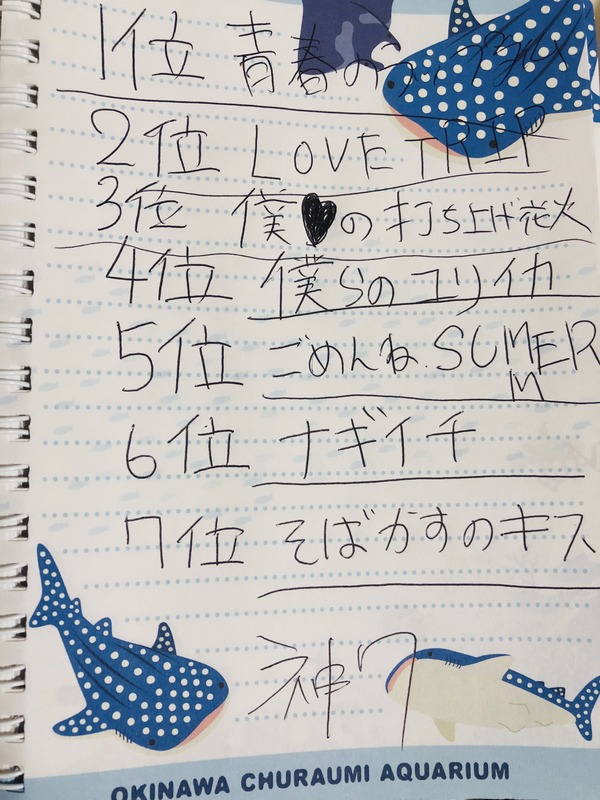 1位 青春のラップタイム
2位 LOVE TRIP
3位 僕♥の打ち上げ花火
4位 僕らのユリイカ
5位 ごめんね.SUMMER
6位 ナギイチ
7位 そばかすのキス
神7
OKINAWA CHURAUMI AQUARIUM